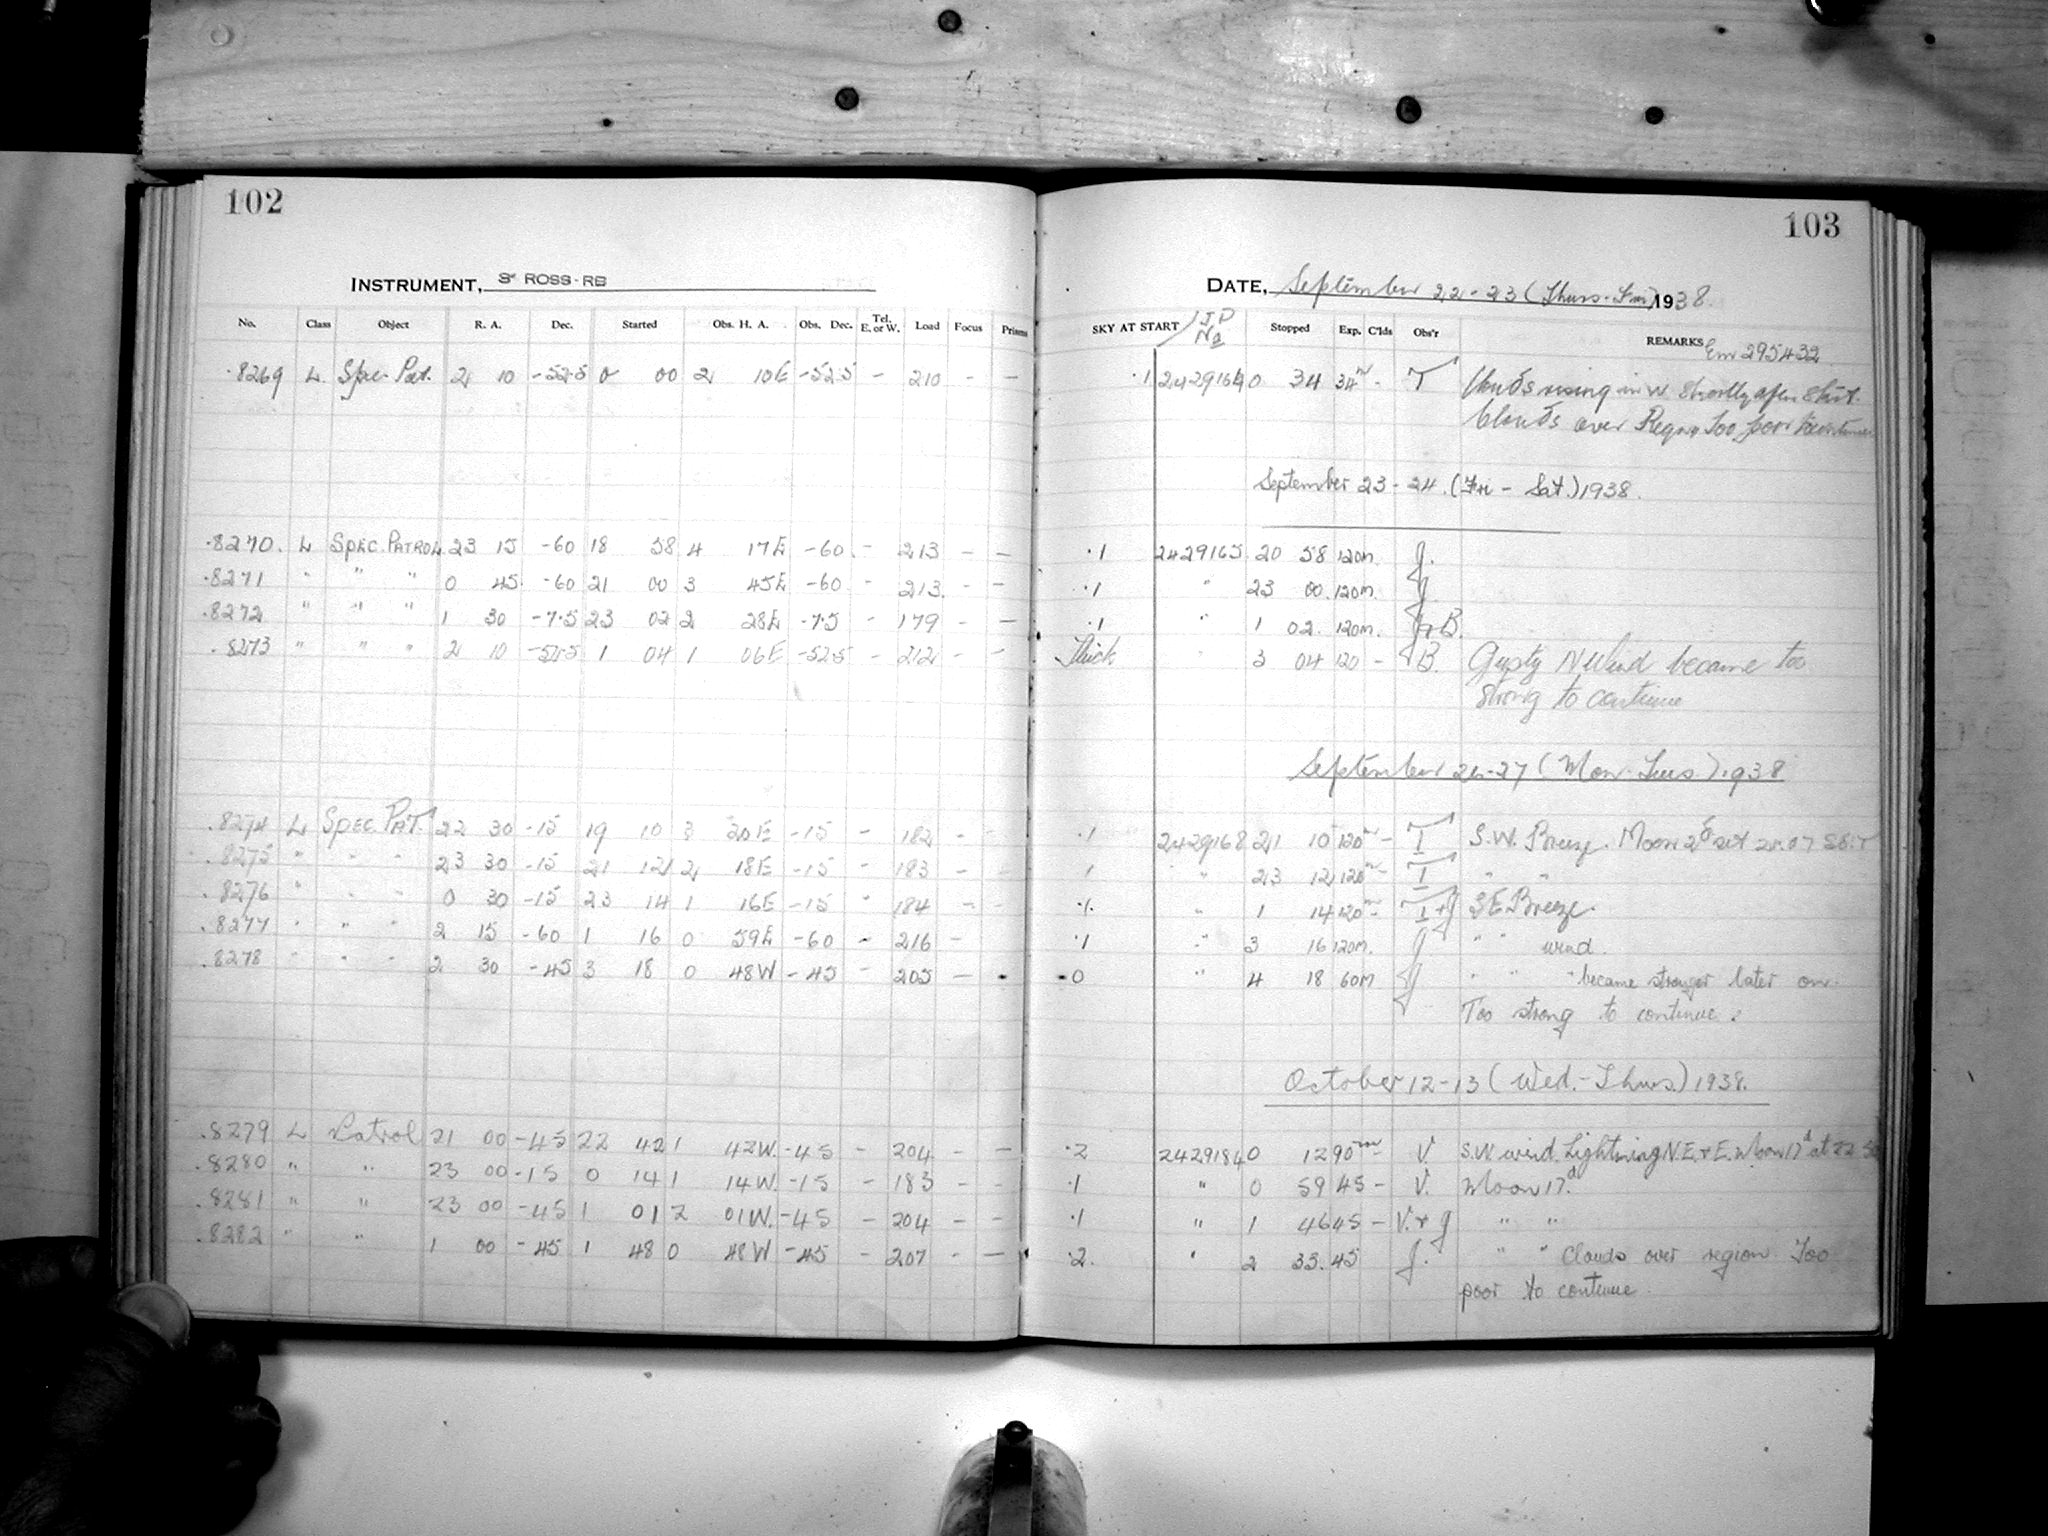 102
103
INSTRUMENT, 3" ROSS-RB
DATE, September 22-23 (Thurs-Fri) 1938
No. Class Object R. A. Dec. Started Obs. H. A. Obs. Dec. Tel. E. or W. Load Focus Prisms SKY AT START J.D No Stopped Exp. C'lds Obs'r REMARKS
.8269 L Spec. Pat. 2 10 -52.5 0 00 2 10E -52.5 - 210 - - .1 2429164 0 34 34m - T Clouds rising in W. shortly after start.
Clouds over Region Too poor to continue
September 23-24. (Fri - Sat.) 1938.
.8270. L SPEC. PATROL 23 15 -60 18 58 4 17E -60 - 213 - - .1 2429165 20 58 120m. J.
.8271 " " " 0 45 -60 21 00 3 45E -60 - 213. - - .1 " 23 00. 120m. J
.8272 " " " 1 30 -7.5 23 02 2 28E -7.5 - 179 - - .1 " 1 02. 120m. J+B.
.8273 " " " 2 10 -52.5 1 04 1 06E -52.5 - 212 - - Thick " 3 04 120 - JB. Gusty N Wind became too
strong to continue
September 26-27 (Mon-Tues) 1938
.8274 L SPEC. PAT. 22 30 -15 19 10 3 20E -15 - 182 - - .1 2429168 21 10 120m - T S.W. Breeze. Moon
.8275 " " " 23 30 -15 21 12 2 18E -15 - 183 - - 1 " 23 12 120m - T " "
.8276 " " " 0 30 -15 23 14 1 16E -15 " 184 - - .1. " 1 14 120m - T+J S E Breeze.
.8277 " " " 2 15 -60 1 16 0 59E -60 - 216 - .1 " 3 16 120m. J " " wind.
.8278 " " " 2 30 -45 3 18 0 48W -45 - 205 - - -0 " 4 18 60M J " " " became stronger later on.
Too strong to continue.
October 12-13 (Wed.-Thurs.) 1938.
.8279 L Patrol 21 00 -45 22 42 1 42W. -45 - 204 - - .2 2429184 0 12 90m - V S.W wind. Lightning N.E. + E. Moon 17d at
.8280 " " 23 00 -15 0 14 1 14W. -15 - 183 - - .1 " 0 59 45 - V. Moon 17.d
.8281 " " 23 00 -45 1 01 2 01W. -45 - 204 - - .1 " 1 46 45 - V. + J " "
.8282 " " 1 00 -45 1 48 0 48W -45 - 207 - - .2. " 2 33. 45 J. " " Clouds over region. Too
poor to continue.